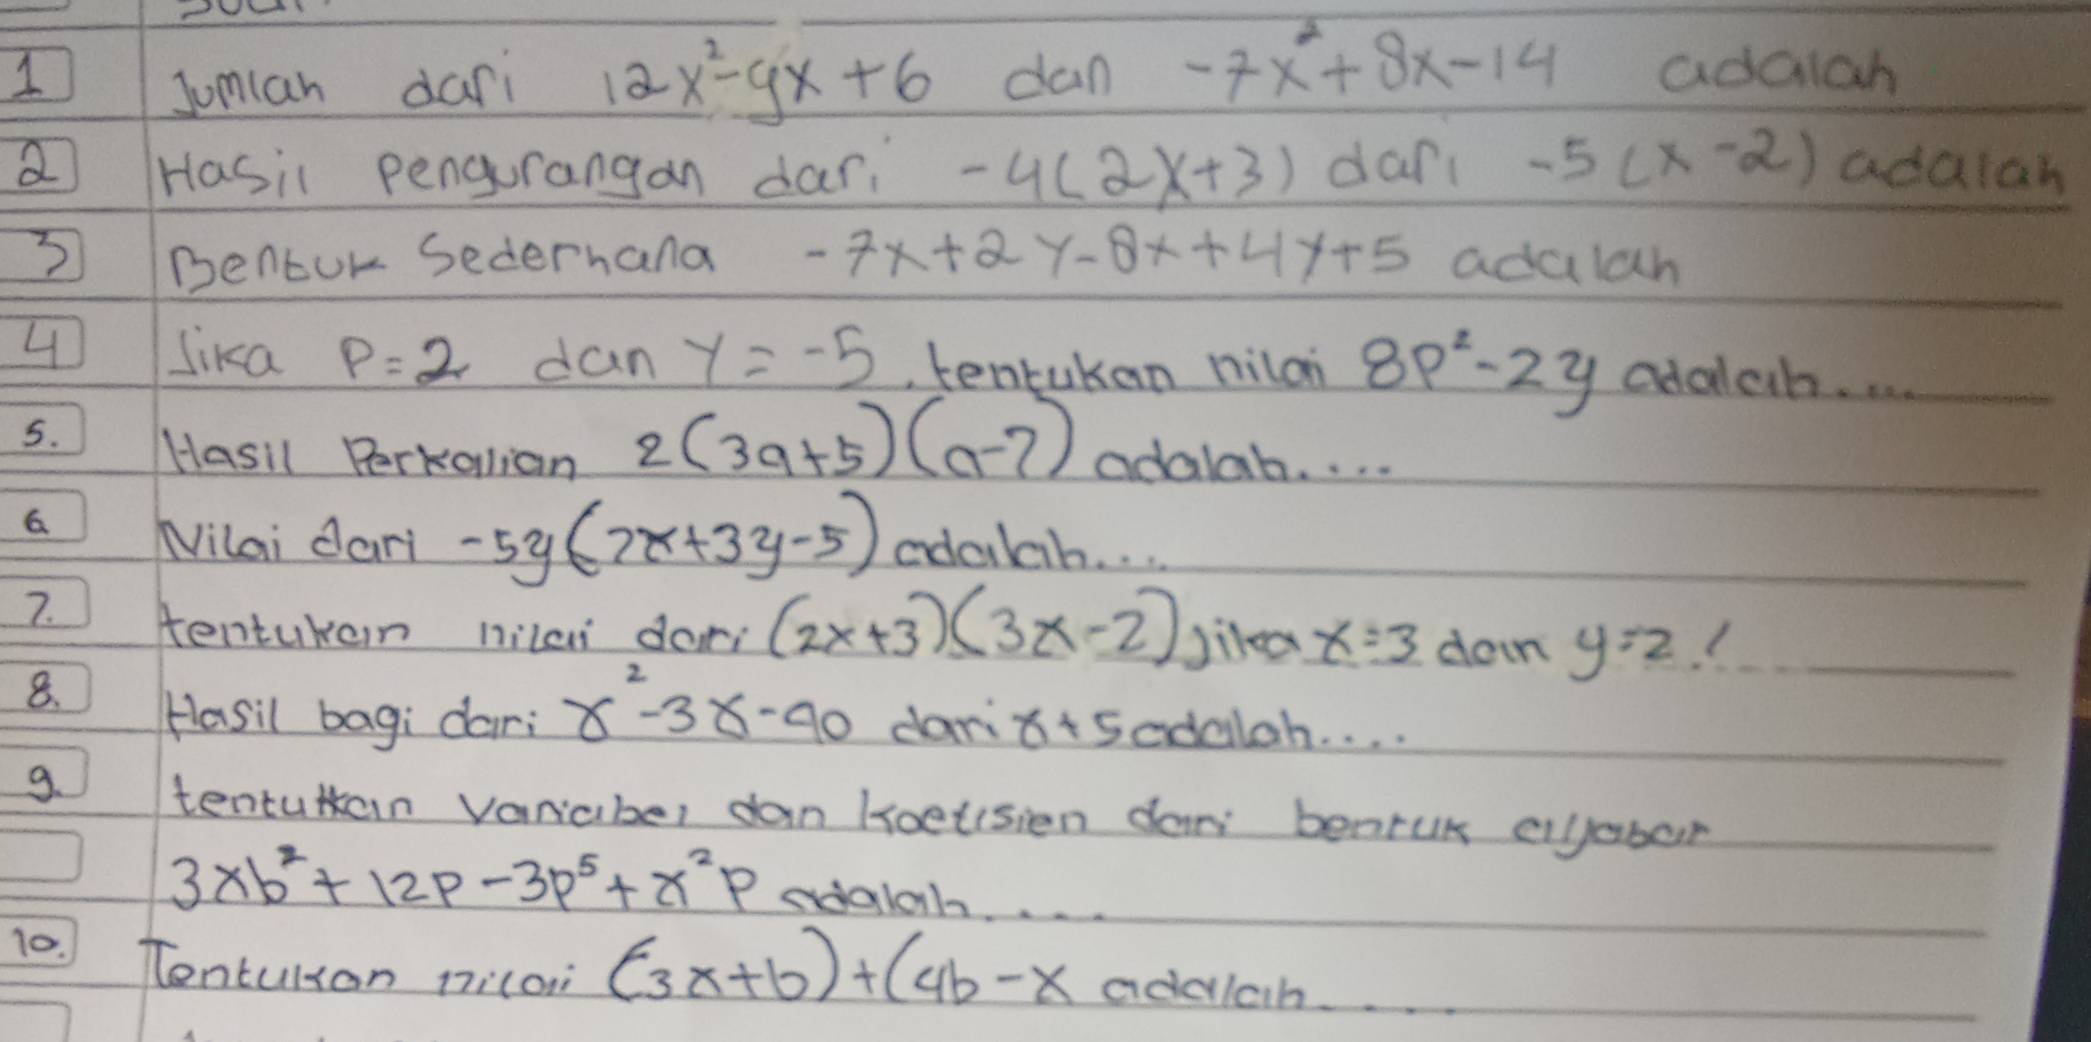 1 Jumlah dari 12x²-9x+6 dan -7x²+8x-14 adalah
2 Hasil pengurangan dari -4(2x+3) dari -5(x-2) adalah
3 Bentuk Sederhana -7x+2y-8x+4y+5 adalah
4 Jika P=2 dan Y=-5, tentukan nilai 8P²-2y adalah.....
5. Hasil Perkalian 2(3a+5)(a-7) adalah.....
6 Nilai dari -5y(7x+3y-5) adalah....
7. tentukan nilai dari (2x+3)(3x-2) jika x=3 dan y=2!
8. Hasil bagi dari x²-3x-90 dari x+5 adalah....
9. tentukan variabel dan koefisien dari bentuk aljabar
3xb²+12p-3p⁵+x²p adalah....
10. Tentukan nilai (-3x+b)+(4b-x adalah....